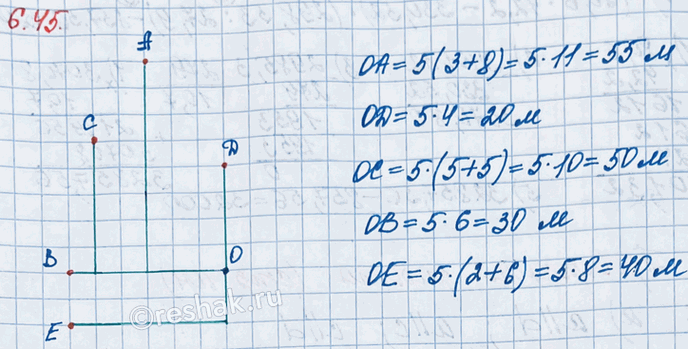 6.45.
A
C
D
B
O
E
OA = 5(3+8) = 5·11 = 55 м
OD = 5·4 = 20 м
OC = 5·(5+5) = 5·10 = 50 м
OB = 5·6 = 30 м
OE = 5·(2+6) = 5·8 = 40 м
©reshak.ru